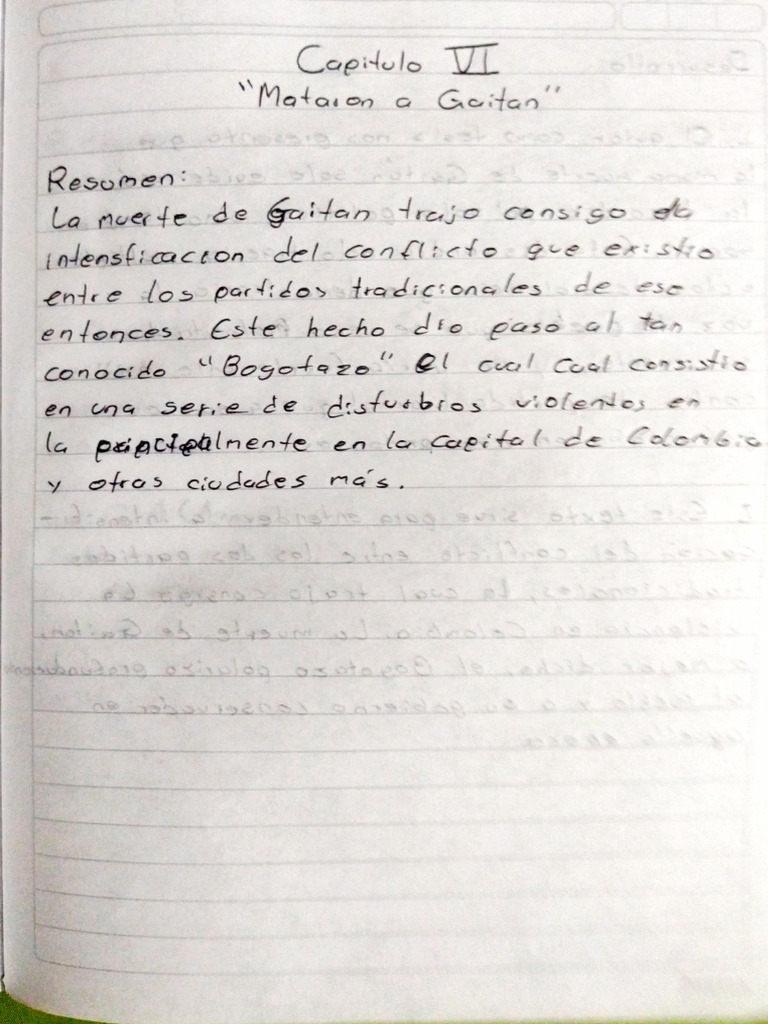 Capitulo VI
"Mataron a Gaitan"
Resumen:
La muerte de Gaitan trajo consigo la
intensficacion del conflicto que existio
entre los partidos tradicionales de ese
entonces. Este hecho dio paso al tan
conocido "Bogotazo" el cual cual consistio
en una serie de disturbios violentos en
la principalmente en la capital de Colombia
y otras ciudades más.